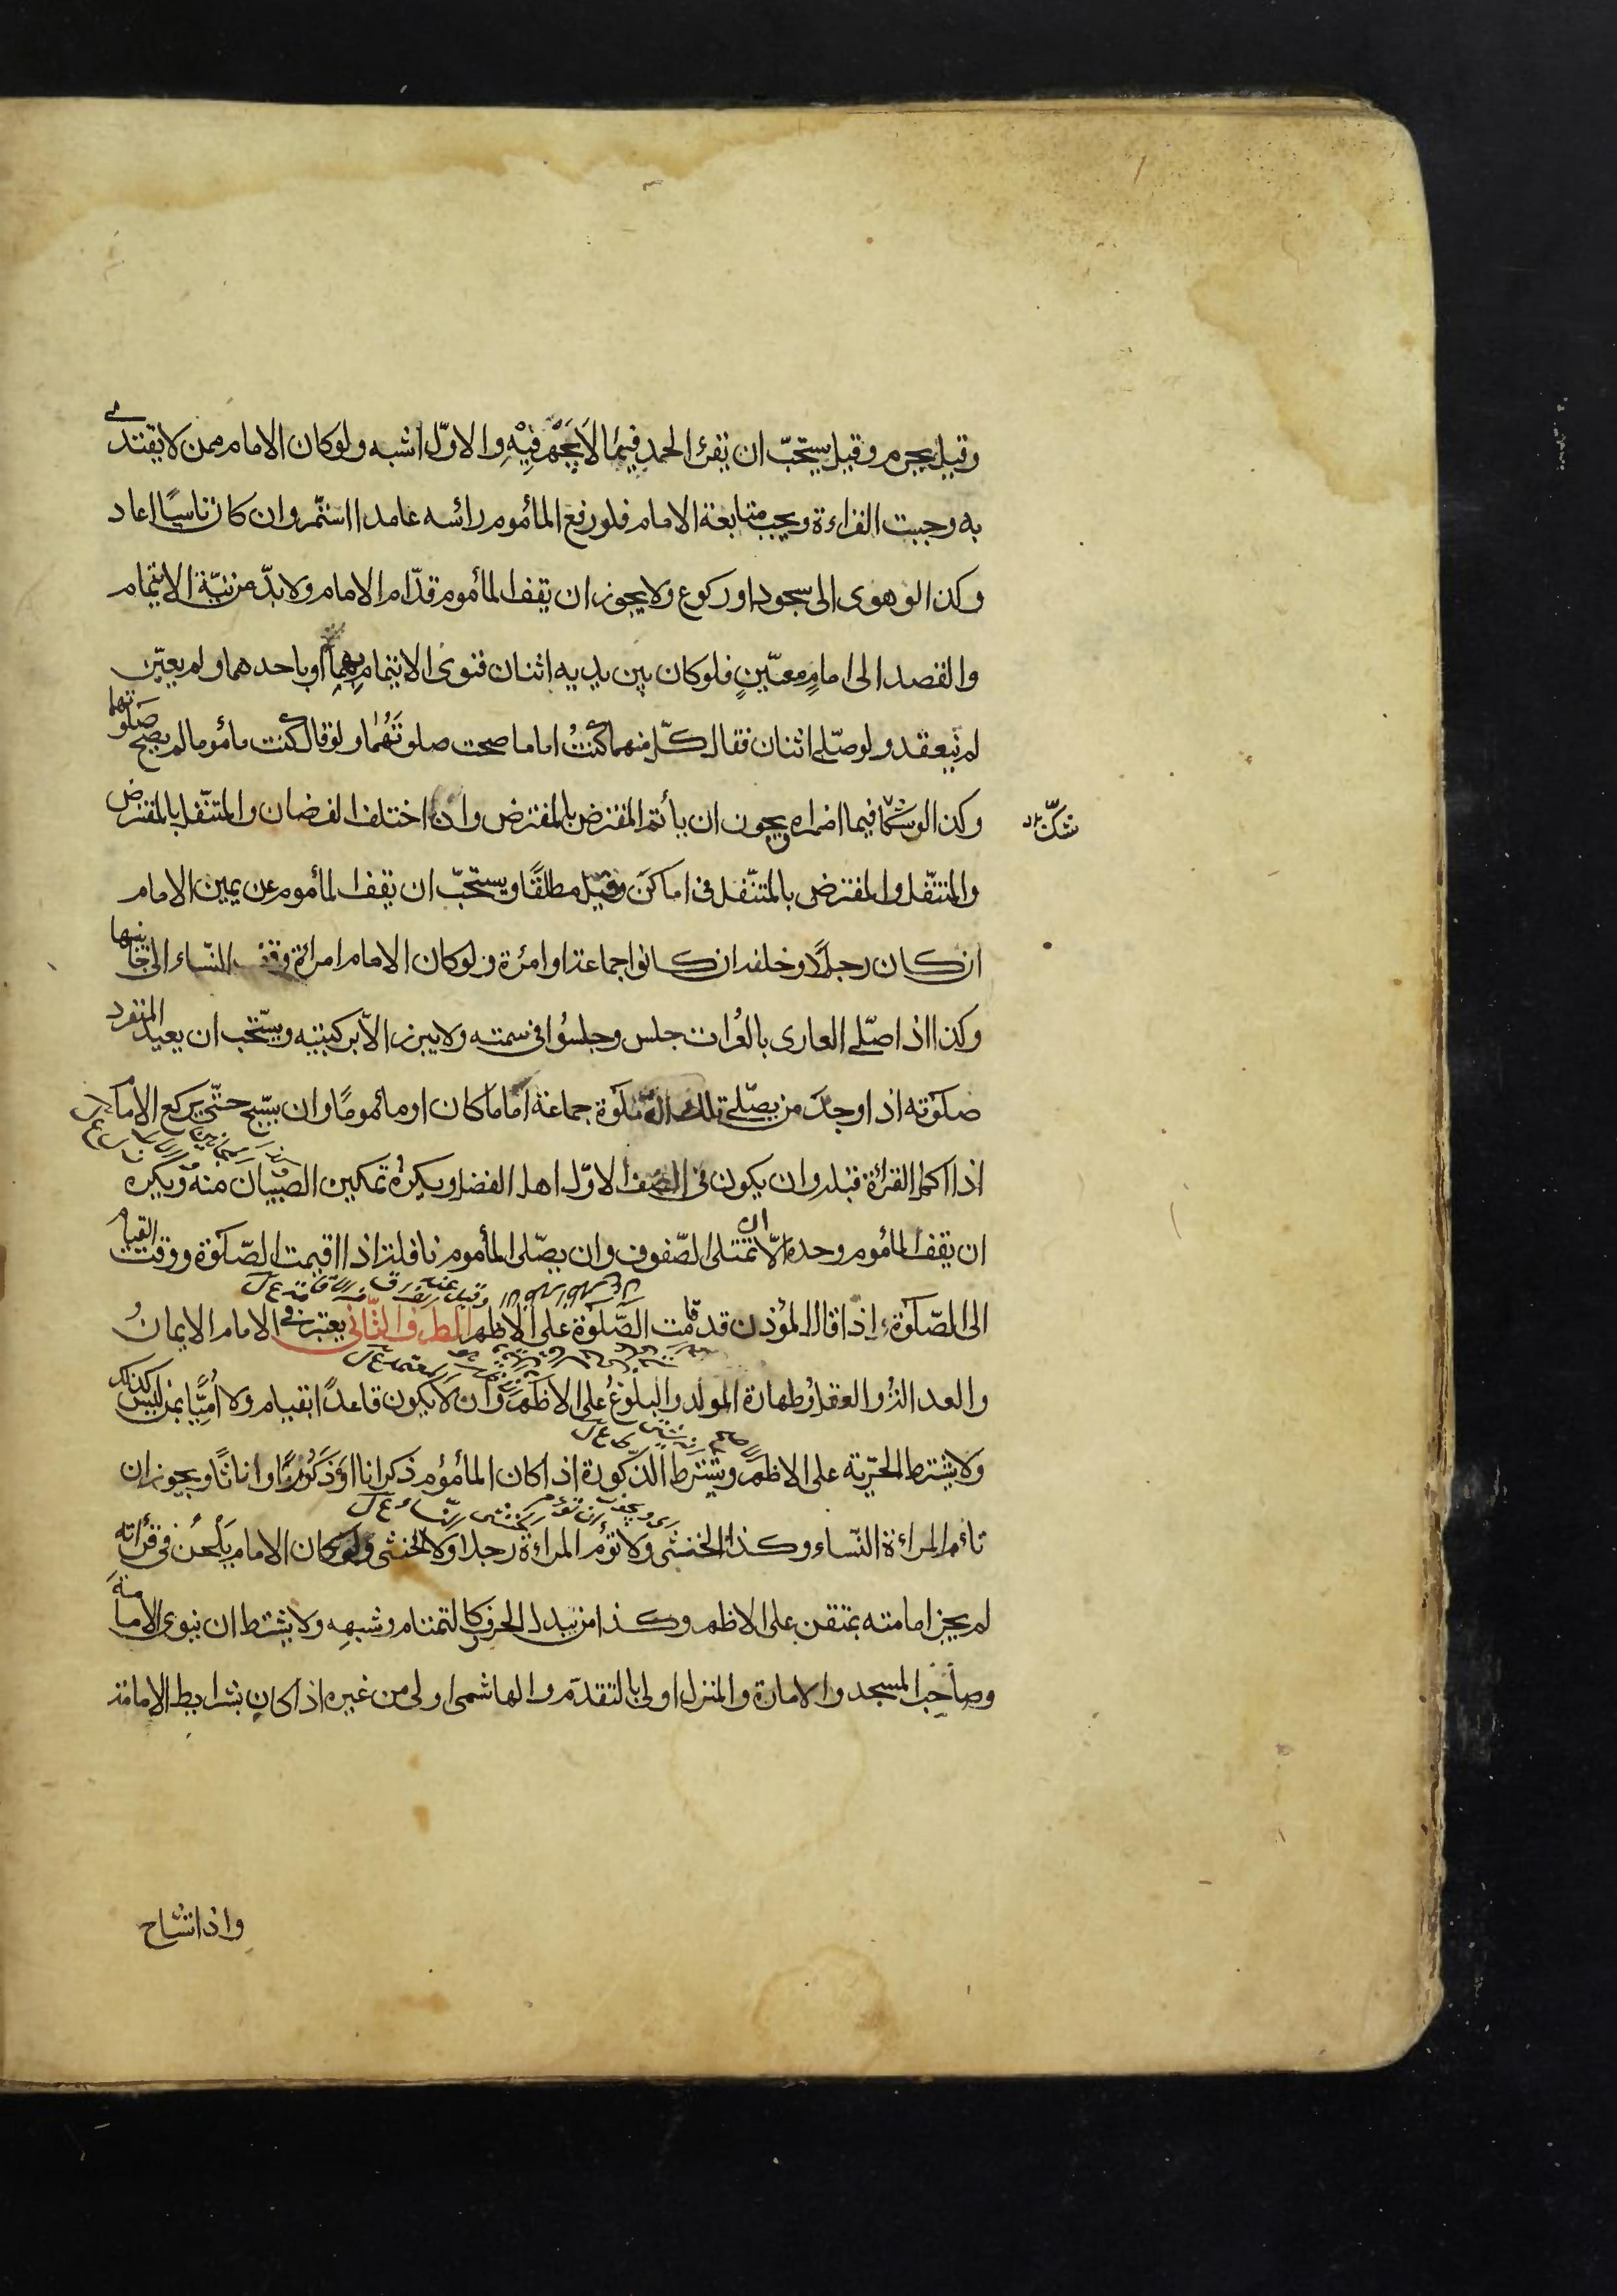 وقيل يحرم وقيل يستحبّ ان يقرئ الحمد فيما لا يجهر فيه والاوّل اشبه ولو كان الامام ممن لا يقتدى
به وجبت القراءة ويجب متابعة الامام فلو رفع المأموم رائسه عامدا استمّر وان كان ناسيًا اعاد
وكذا لو هوى الى سجود او ركوع ولا يجوز ان يقف المأموم قدّام الامام ولا بدّ من نيّة الايتمام
والقصد الى امامٍ معيّنٍ فلو كان بين يديه اثنان فنوى الايتمام بهما او باحدهما ولم يعيّن
لم ينعقد ولو صلّى اثنان فقال كلّ منهما كنتُ اماما صحت صلوتهما ولو قال كنت مأموما لم يصح صلوتهما
وكذا لو شكّا فيما اضمراه ويجوز ان يأتم المفترض بالمفترض وان اختلف الفرضان والمتنّفل بالمفترض
شكّ
والمتنّفل والمفترض بالمتنّفل فى اماكن وقيل مطلقًا ويستحبّ ان يقف المأموم عن يمين الامام
ان كان رجلًا وخلفه ان كانوا جماعة او امرئة ولو كان الامام امرائة وقف النّساء الى جانبها
وكذا اذا صلّى العارى بالعُرات جلس وجلسُوا فى سمته ولا يبرز الّا بركبتيه ويستّحب ان يعيد المنفرد
صلوته اذا وجد من يصلّى تلك الصّلوة جماعة اماما كان او مأمومًا وان يسّبح حتّى يركع الامام
اذا اكمل القرائة قبله وان يكون فى الصف الاوّل اهل الفضل ويكره تمكين الصّبيان منه ويكره
ان يقف المأموم وحده الّا ان تمتلى الصّفوف وان يصّلى المأموم نافلة اذا اقيمت الصّلوة ووقت القيام
الى الصّلوة اذا قال المؤذن قد قامت الصّلوة على الاظهر الطرف الثّانى يعتبر فى الامام الايمانُ
والعدالةُ والعقلُ وطهارة المولد والبلُوغُ على الاظهر وان لا يكون قاعدًا بقيام ولا أمّيًّا بمن ليس كذلك
ولا يشترط الحرّيته على الاظهر ويشترط الذّكورة اذا كان المأمُوم ذكرانا او ذكُورًا واناثًا ويجوز ان
تائم المرائة النّساء وكذا الخنثى ولا تؤم المراءة رجلا ولا الخنثى ولو كان الامام يلحُن فى قرُاته
لم يجز امامته بمتقن على الاظهر وكذا من يبدل الحرف كالتمتام وشبهه ولا يشترط ان ينوى الأمامة
وصاحب المسجد والامارة والمنزل اولى بالتقدّم والهاشمى اولى من غيره اذا كان بشرايط الامامة
واذا تشاح